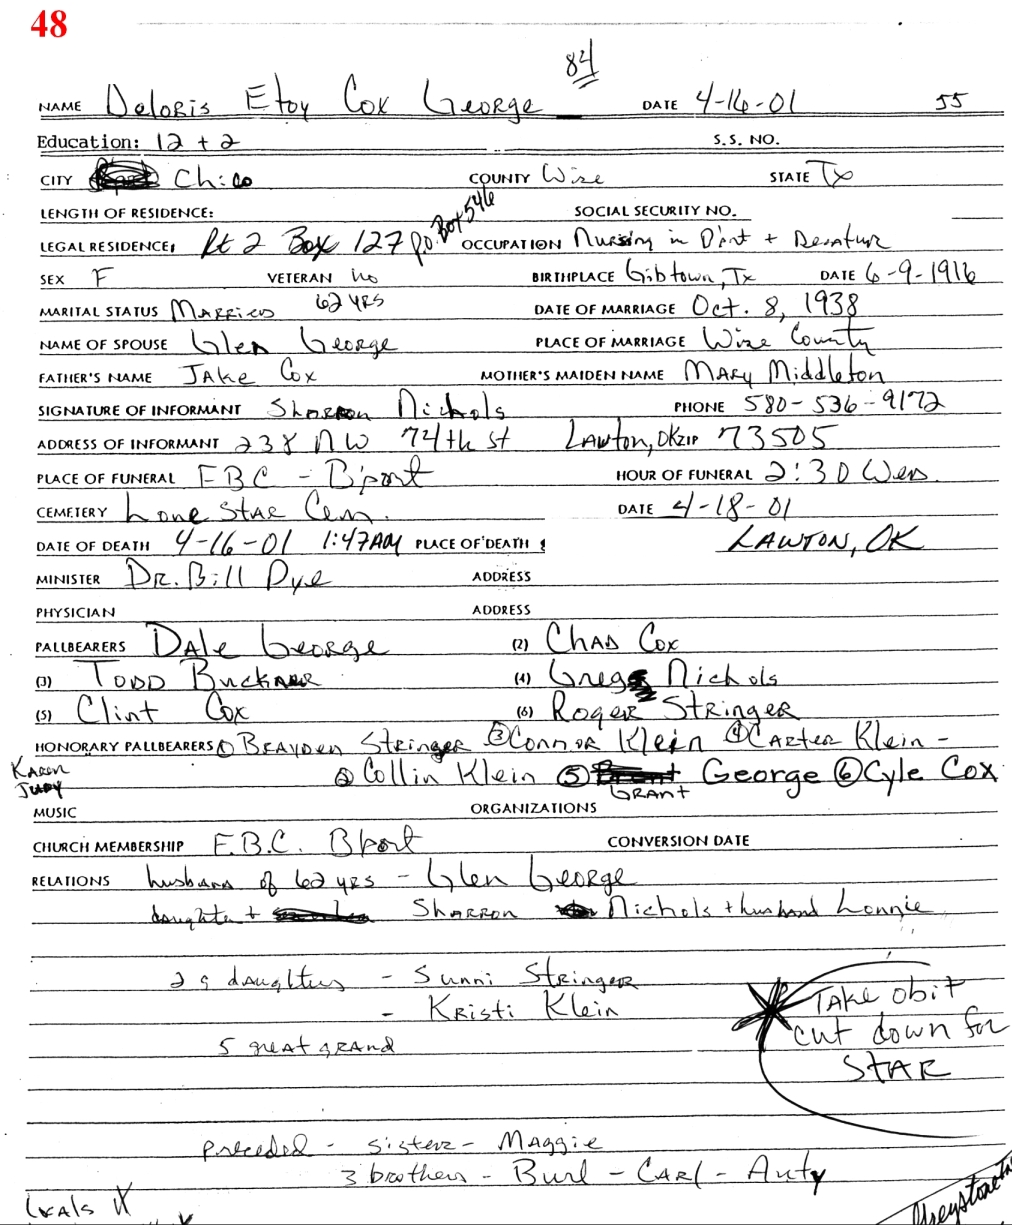 48
84
NAME Deloris Etoy Cox George DATE 4-16-01 55
Education: 12 + 2 S.S. NO.
CITY Chico COUNTY Wise STATE Tx
LENGTH OF RESIDENCE: SOCIAL SECURITY NO.
LEGAL RESIDENCE: Rt 2 Box 127 P.O. Box 546 OCCUPATION Nursing in B'port + Decatur
SEX F VETERAN no BIRTHPLACE Gibtown, Tx DATE 6-9-1916
MARITAL STATUS Married 62 yrs DATE OF MARRIAGE Oct. 8, 1938
NAME OF SPOUSE Glen George PLACE OF MARRIAGE Wise County
FATHER'S NAME Jake Cox MOTHER'S MAIDEN NAME Mary Middleton
SIGNATURE OF INFORMANT Sharron Nichols PHONE 580-536-9172
ADDRESS OF INFORMANT 238 NW 74th St Lawton, OK ZIP 73505
PLACE OF FUNERAL FBC - B'port HOUR OF FUNERAL 2:30 Wed.
CEMETERY Lone Star Cem. DATE 4-18-01
DATE OF DEATH 4-16-01 1:47AM PLACE OF DEATH : LAWTON, OK
MINISTER Dr. Bill Pye ADDRESS
PHYSICIAN ADDRESS
PALLBEARERS Dale George (2) Chad Cox
(3) Todd Buckner (4) Greg Nichols
(5) Clint Cox (6) Roger Stringer
HONORARY PALLBEARERS ① Brayden Stringer ③ Connor Klein ④ Carter Klein -
Karen Judy ② Collin Klein ⑤ Grant George ⑥ Cyle Cox
MUSIC ORGANIZATIONS
CHURCH MEMBERSHIP F.B.C. Bport CONVERSION DATE
RELATIONS husband of 62 yrs - Glen George
daughter + Sharron Nichols + husband Lonnie
2 g daughters - Sunni Stringer
- Kristi Klein
5 great grand
Take obit
cut down for
STAR
preceded - sister - Maggie
3 brothers - Burl - Carl - Auty